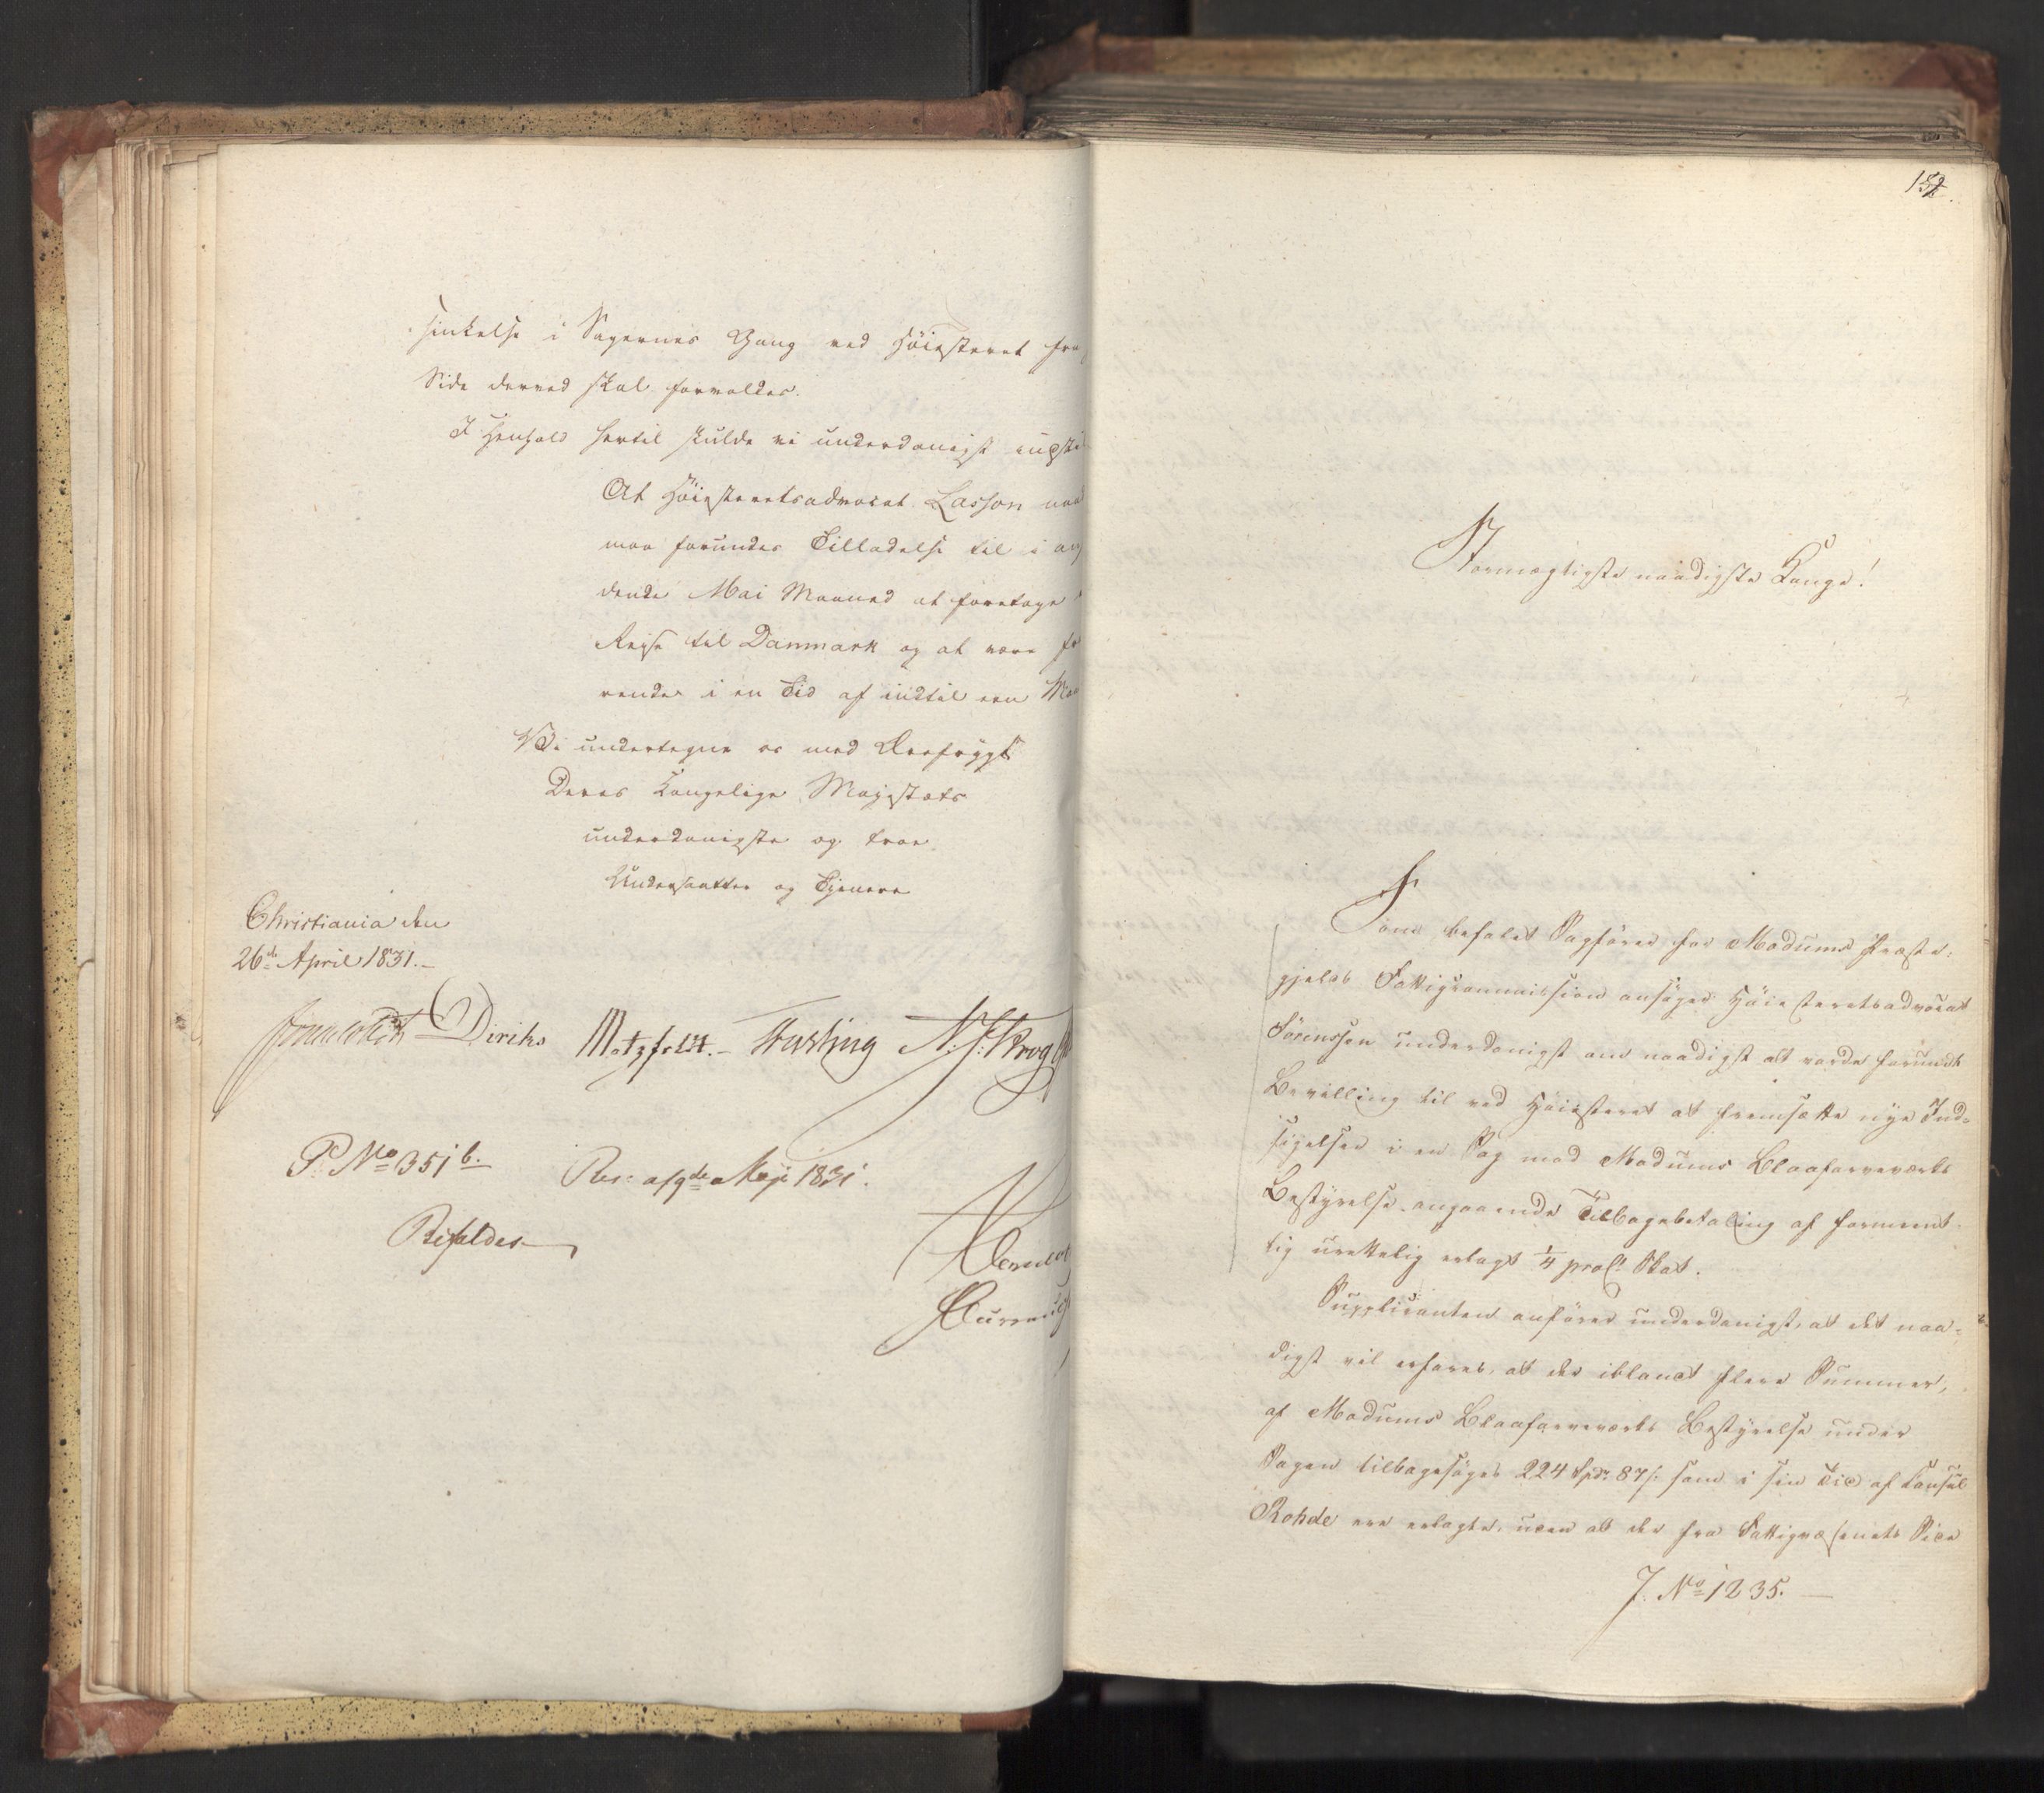 sinkelse i Sagernes Gang ved Höiesteret fra
Side derved skal forvoldes.
I Henhold hertil skulde vi underdanigst indsti
At Höiesteretsadvocat Lasson naa
maa forundes Tilladelse til i
dende Mai Maaned at foretage
Reise til Danmark og at være fra
rende i en Tid af indtil een Maa
Vi undertegne os med Ærefrygt
Deres Kongelige Majestæts
underdanigste og troe
Undersaatter og Tjenere
Christiania den
26de April 1831.
Diriks Motzfeldt. N. J. Krog
P. No 351 b. Res: af 9de Maji 1831.
Bifaldes
152.
Stormægtigste naadigste Konge!
Som befalet Sagförer for Modums Præste-
gjelds Fattigcommission ansöger Höiesteretsadvocat
Sörenssen underdanigst om naadigst at vorde forundt
Bevilling til ved Höiesteret at fremsætte nye Ind-
sigelser i en Sag mod Modums Blaafarveværks
Bestyrelse angaaende Tilbagebetaling af forment-
lig urettelig erlagt 1/4 proCt Skat.
Supplicanten anförer underdanigst, at det naa-
digst vil erfares, at der iblandt flere Summer,
af Modums Blaafarveværks Bestyrelse under
Sagen tilbagesöges 224 Spd. 87 s. som i sin Tid af Consul
Rohde ere erlagte, uden at der fra Fattigvæsenets Side
J. No 1235.